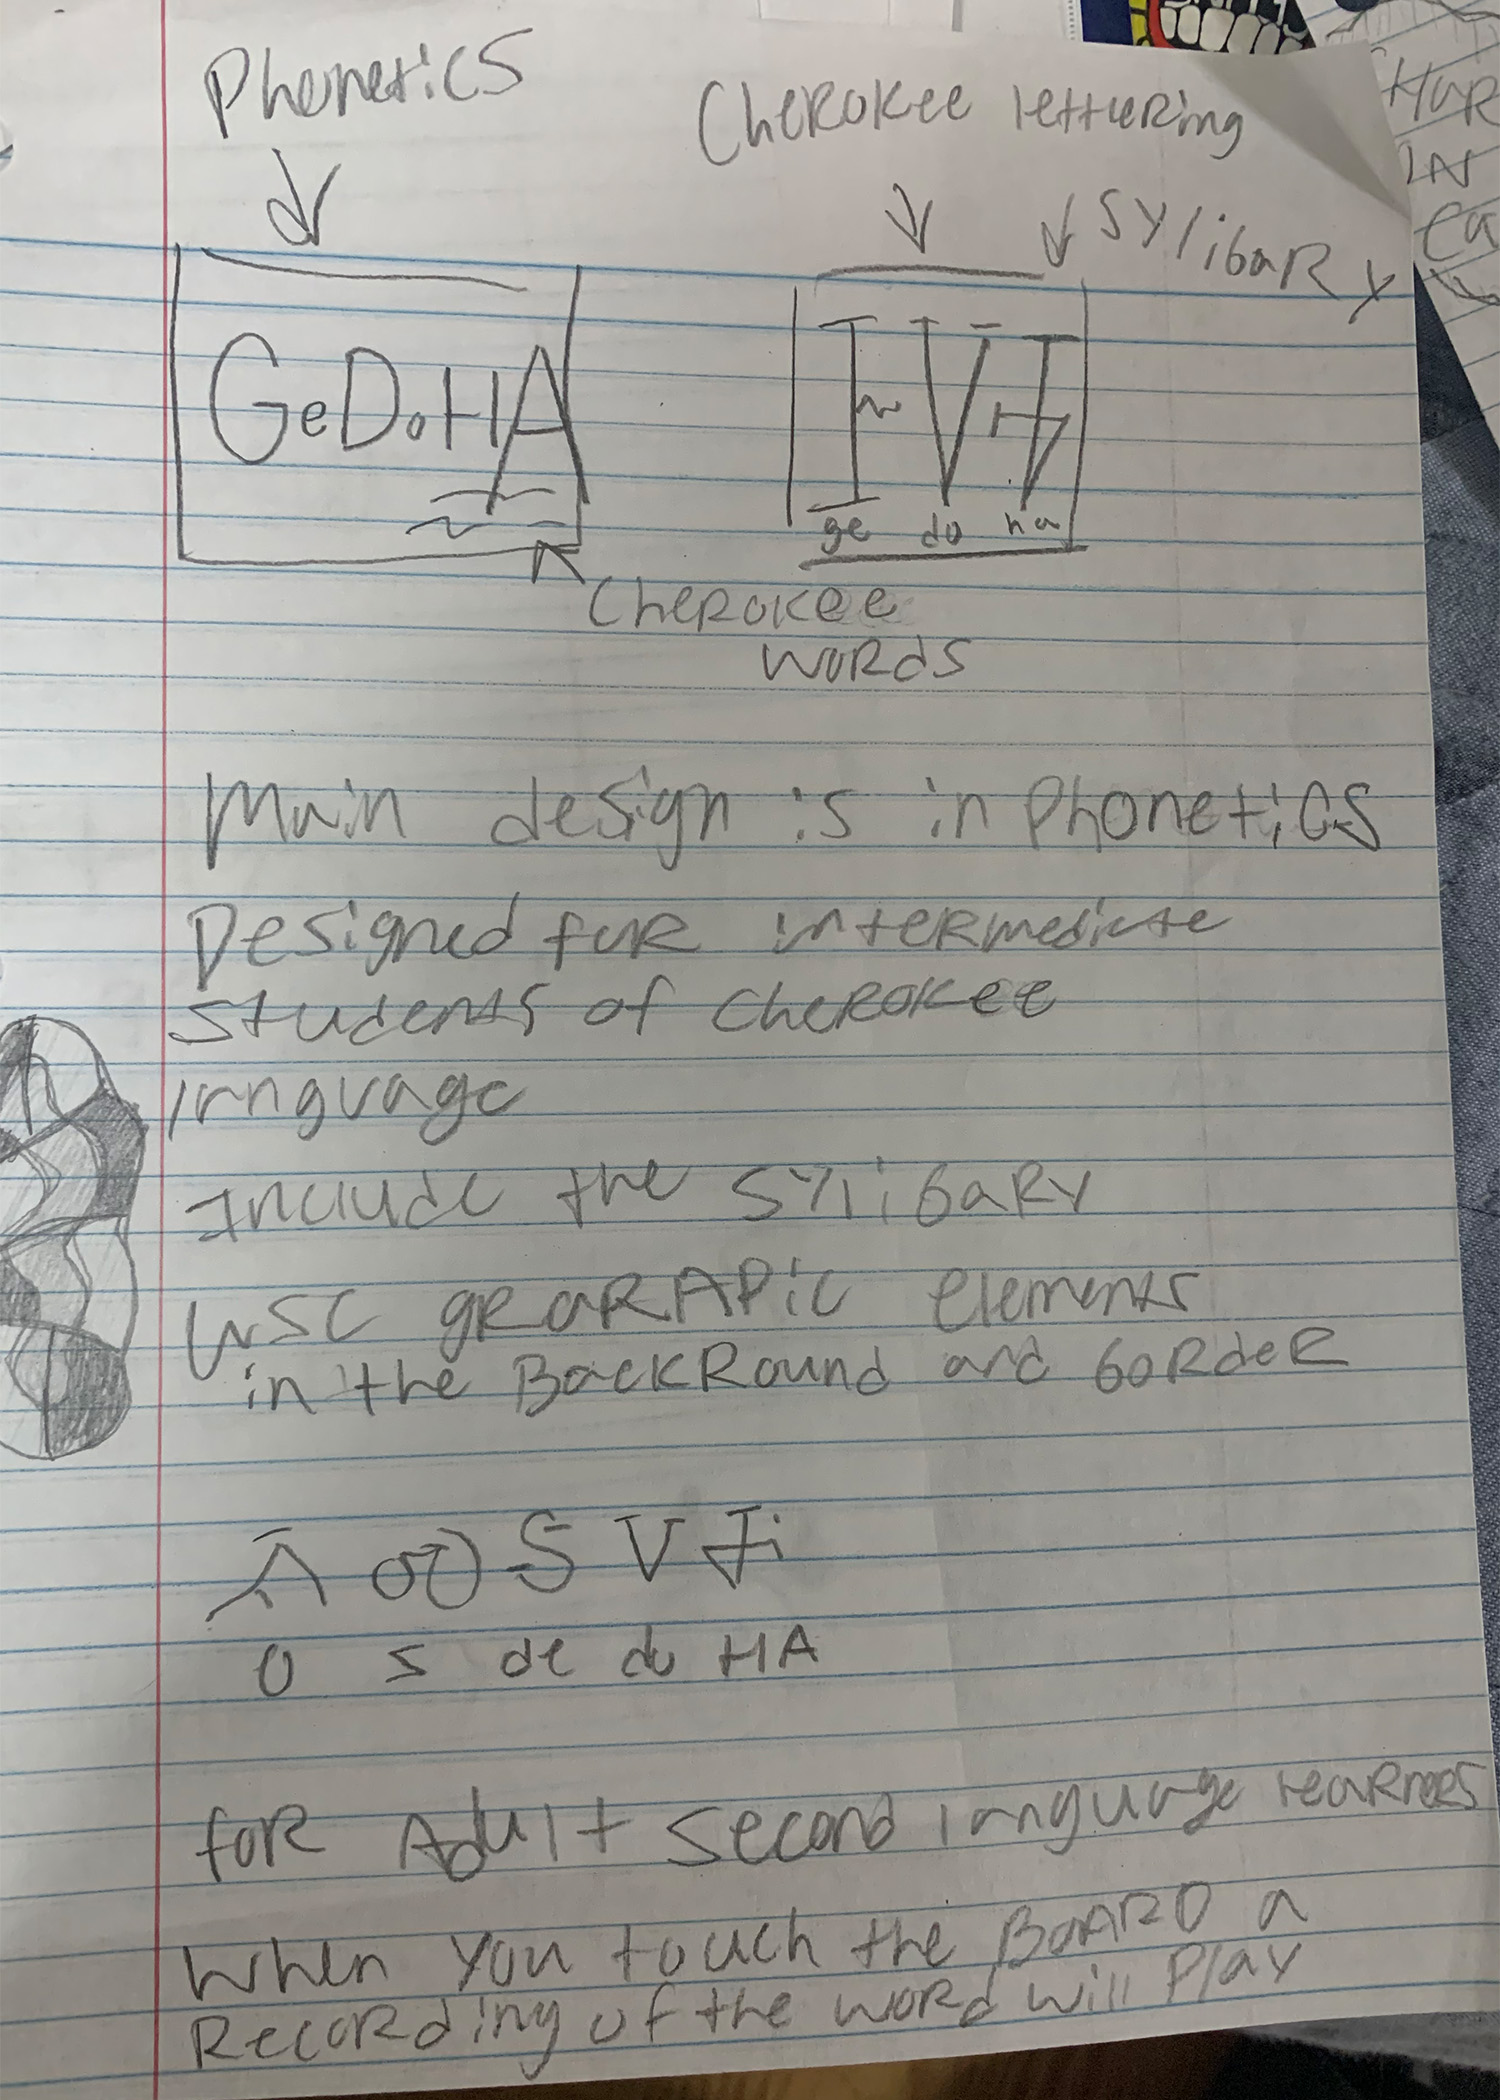 Phonetics
Cherokee lettuering
Sylibary
GeDoHA
ᎨᏙᎭ
ge do ha
Cherokee
words
Main design is in Phonetics
Designed for intermediate
students of Cherokee
language
Include the Sylibary
use grarapic elements
in the Backround and border
ᎣᏍᏕᏙᎭ
O s de do HA
for Adult second language learners
When you touch the Board a
Recording of the word will Play
HUR
IN